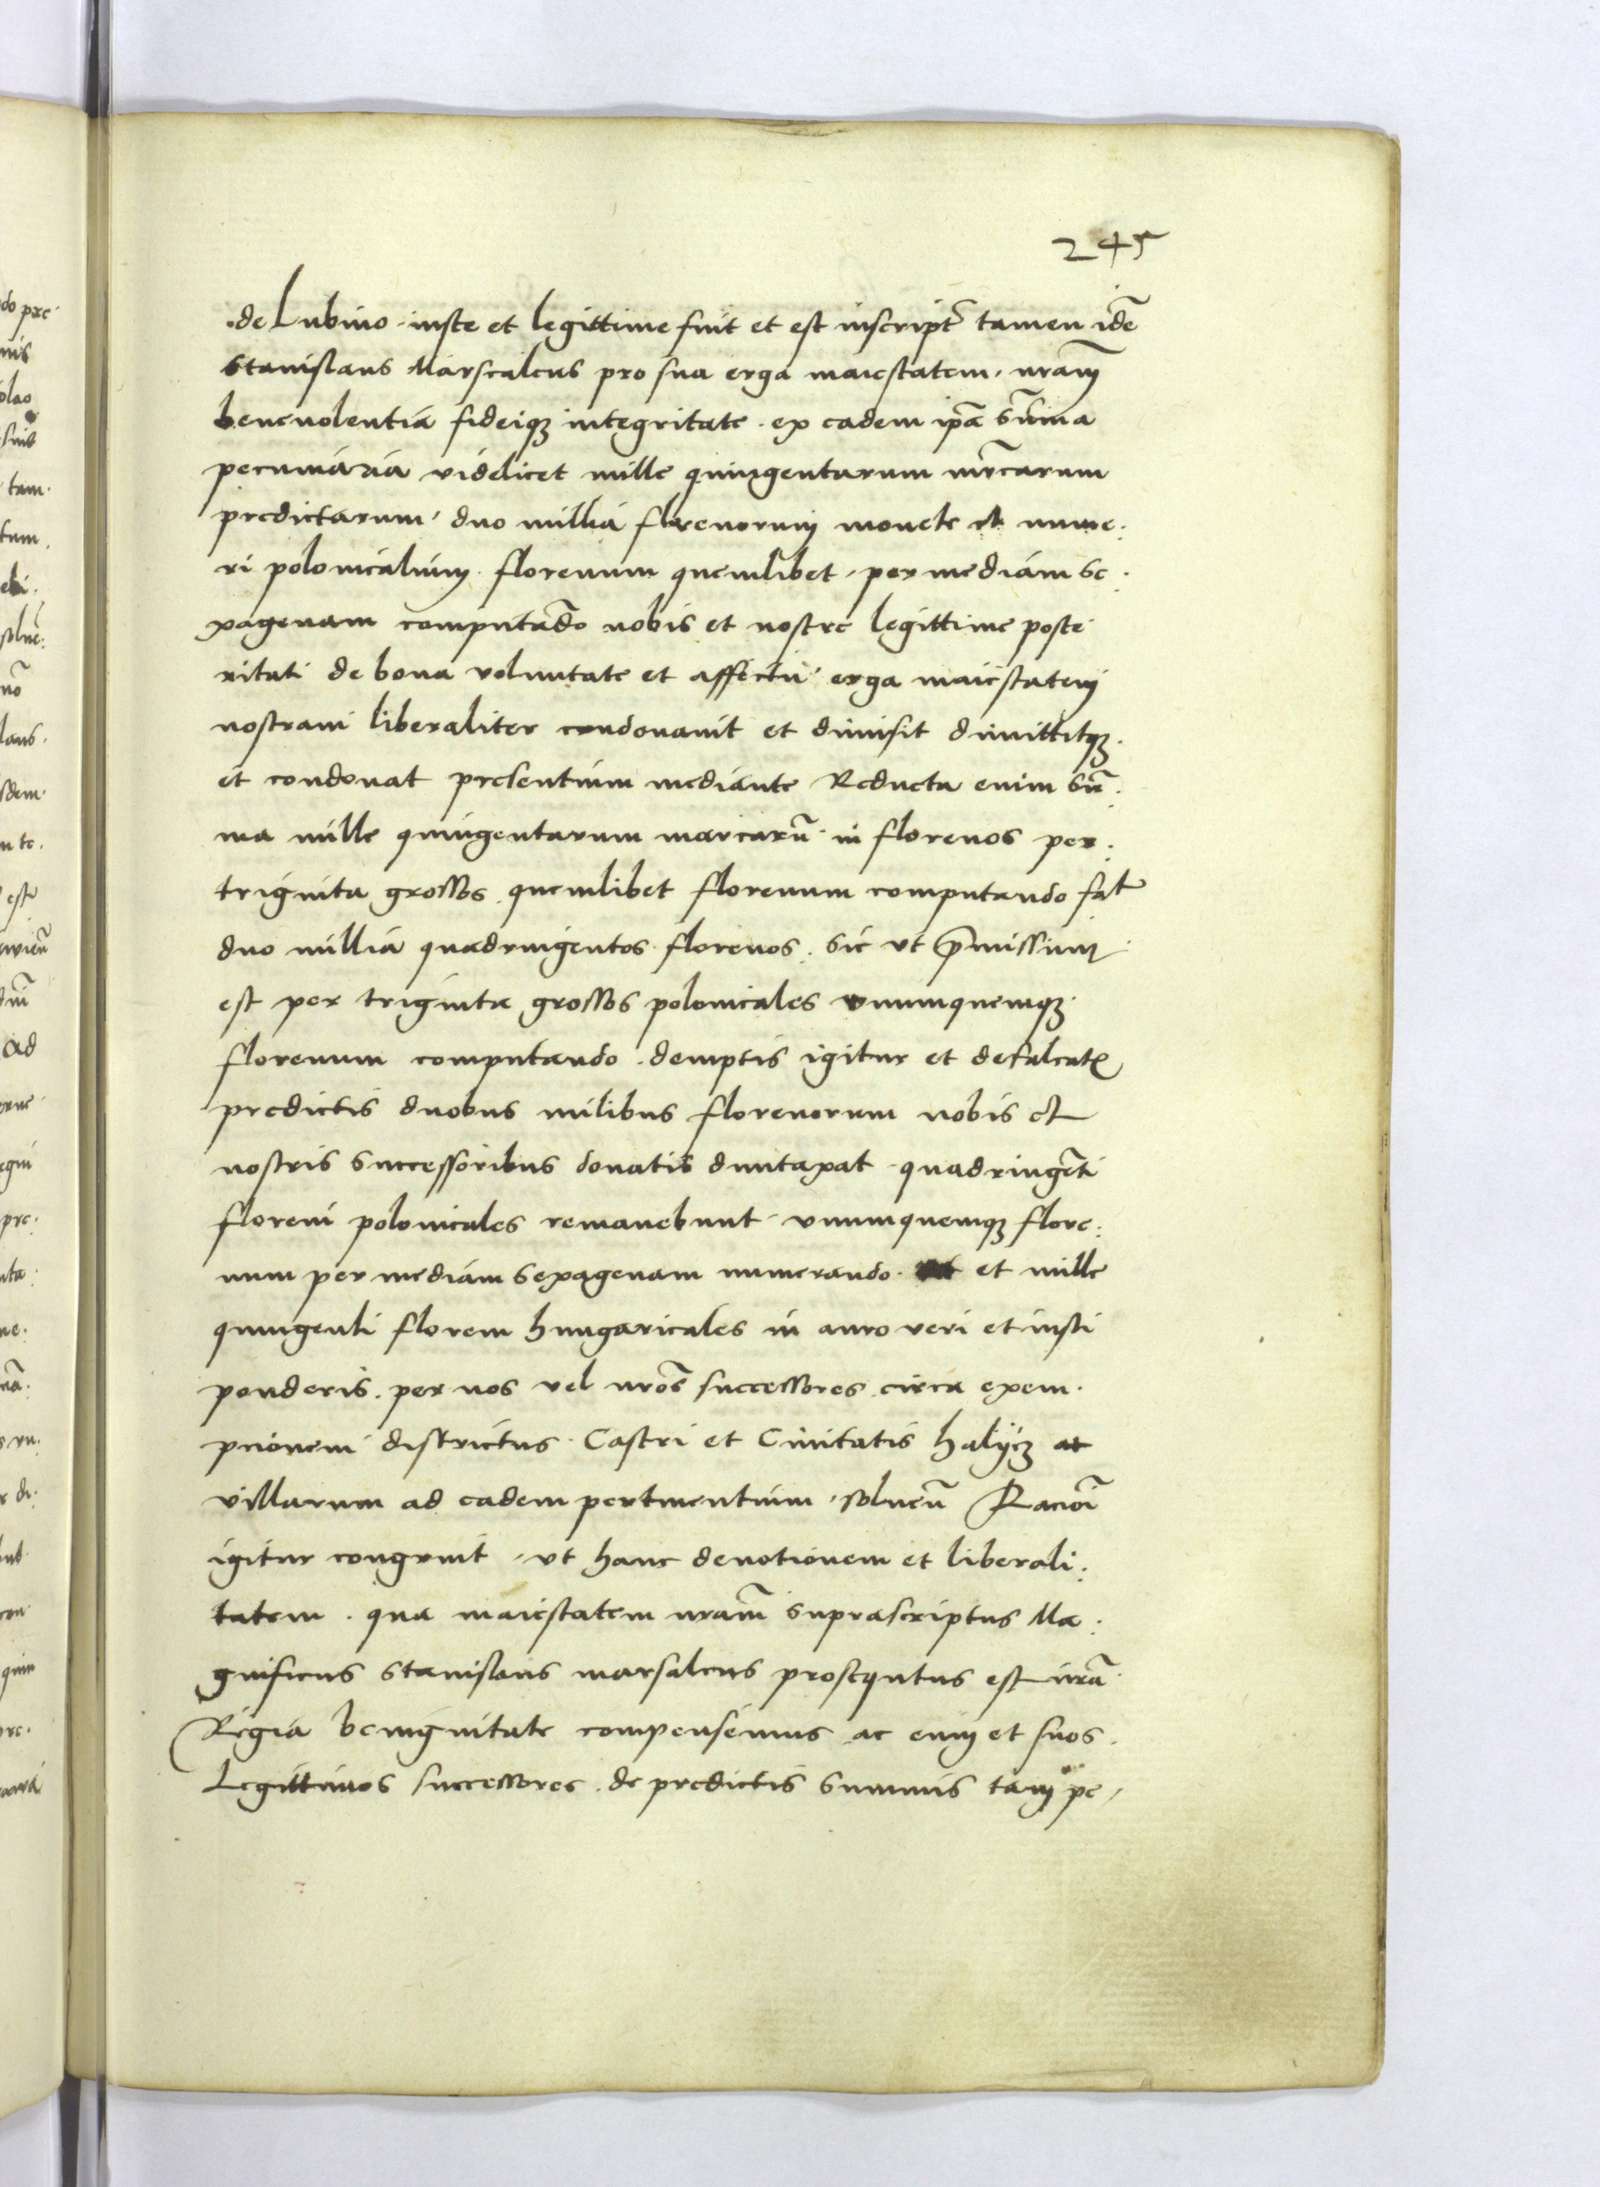 245
de Lubino iuste et legittime fuit et est inscript9 tamen idē
Stanislaus Marscalcus pro sua erga maiestatem nram̄
beneuolentia fideiqꝫ integritate ex eadem ipā Sum̄ma
pecuniaria videlicet mille quingentarum mr̄carum
predictarum duo millia florenorum monete et nume:
ri polonicalium florenum quemlibet per mediam se:
xagenam computādo nobis et nostre legittime poste
ritati de bona voluntate et affectu erga maiestatem
nostram liberaliter condonauit et dimisit dimittitqꝫ
et condonat presentium mediante Reducta enim sū:
ma mille quingentarum marcarū in florenos per:
triginta grossos quemlibet florenum computando fat
duo millia quadringentos florenos sic vt p̄missum
est per triginta grossos polonicales vnumquemqꝫ
florenum computando demptis igitur et defalcatis
predictis duobus milibus florenorum nobis et
nostris successoribus donatis duntaxat quadringēti
floreni polonicales remanebunt vnumquemqꝫ flore:
num per mediam sexagenam numerando et mille
quingenti floreni hungaricales in auro veri et iusti
ponderis per nos vel nros̄ successores circa exem
pcionem districtus Castri et Ciuitatis halijcz ac
villarum ad eadem pertinentium soluen̄ Racioni
igitur congruit vt hanc deuotionem et liberali:
tatem qua maiestatem nram̄ suprascriptus Ma:
gnificus Stanislaus marsalcus prosequtus est nrā
Regia benignitate compensemus ac eum et suos
Legittimos successores de predictis summis tam pe